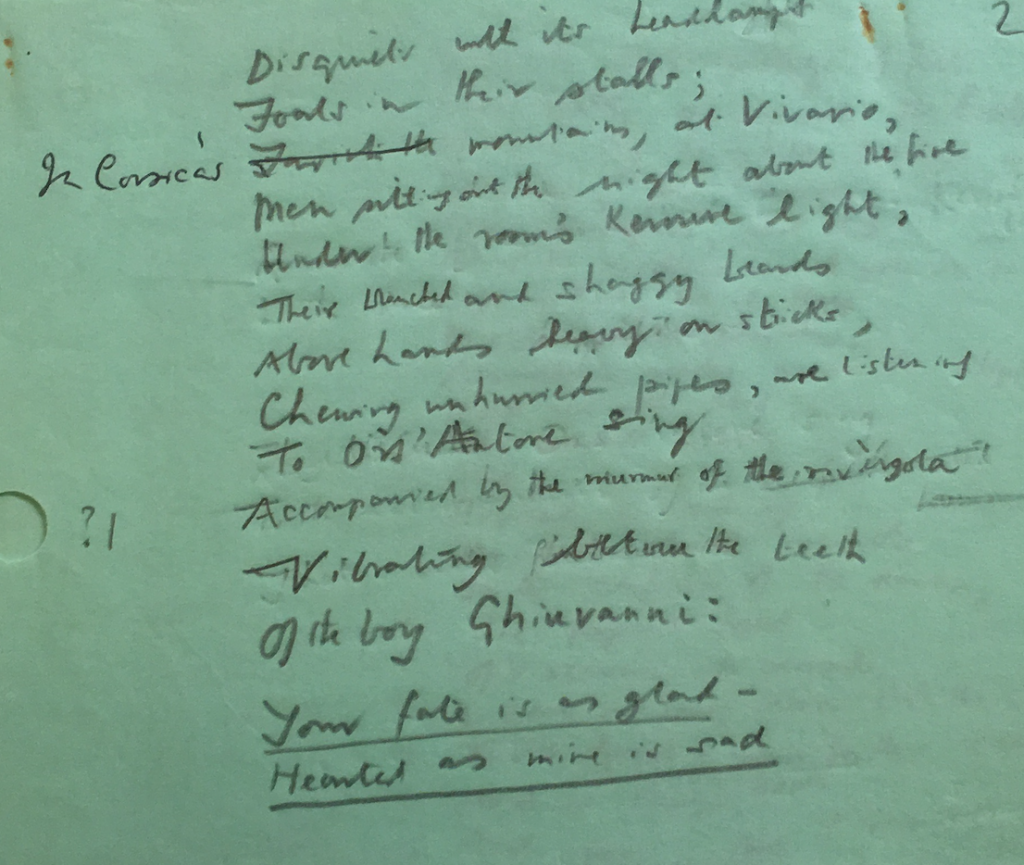 2
Disquiets with its headlamps
Foals in their stalls;
In Corsica's mountains, at Vivario,
Men sitting out the night about the fire
Under the room's Kerosene light,
Their blanched and shaggy beards
Above hands heavy on sticks,
Chewing unhurried pipes, are listening
To Ors' Antone sing
Accompanied by the murmur of the rivergola
?1 Vibrating between the teeth
Of the boy Ghiuvanni:
Your fate is as glad -
Hearted as mine is sad